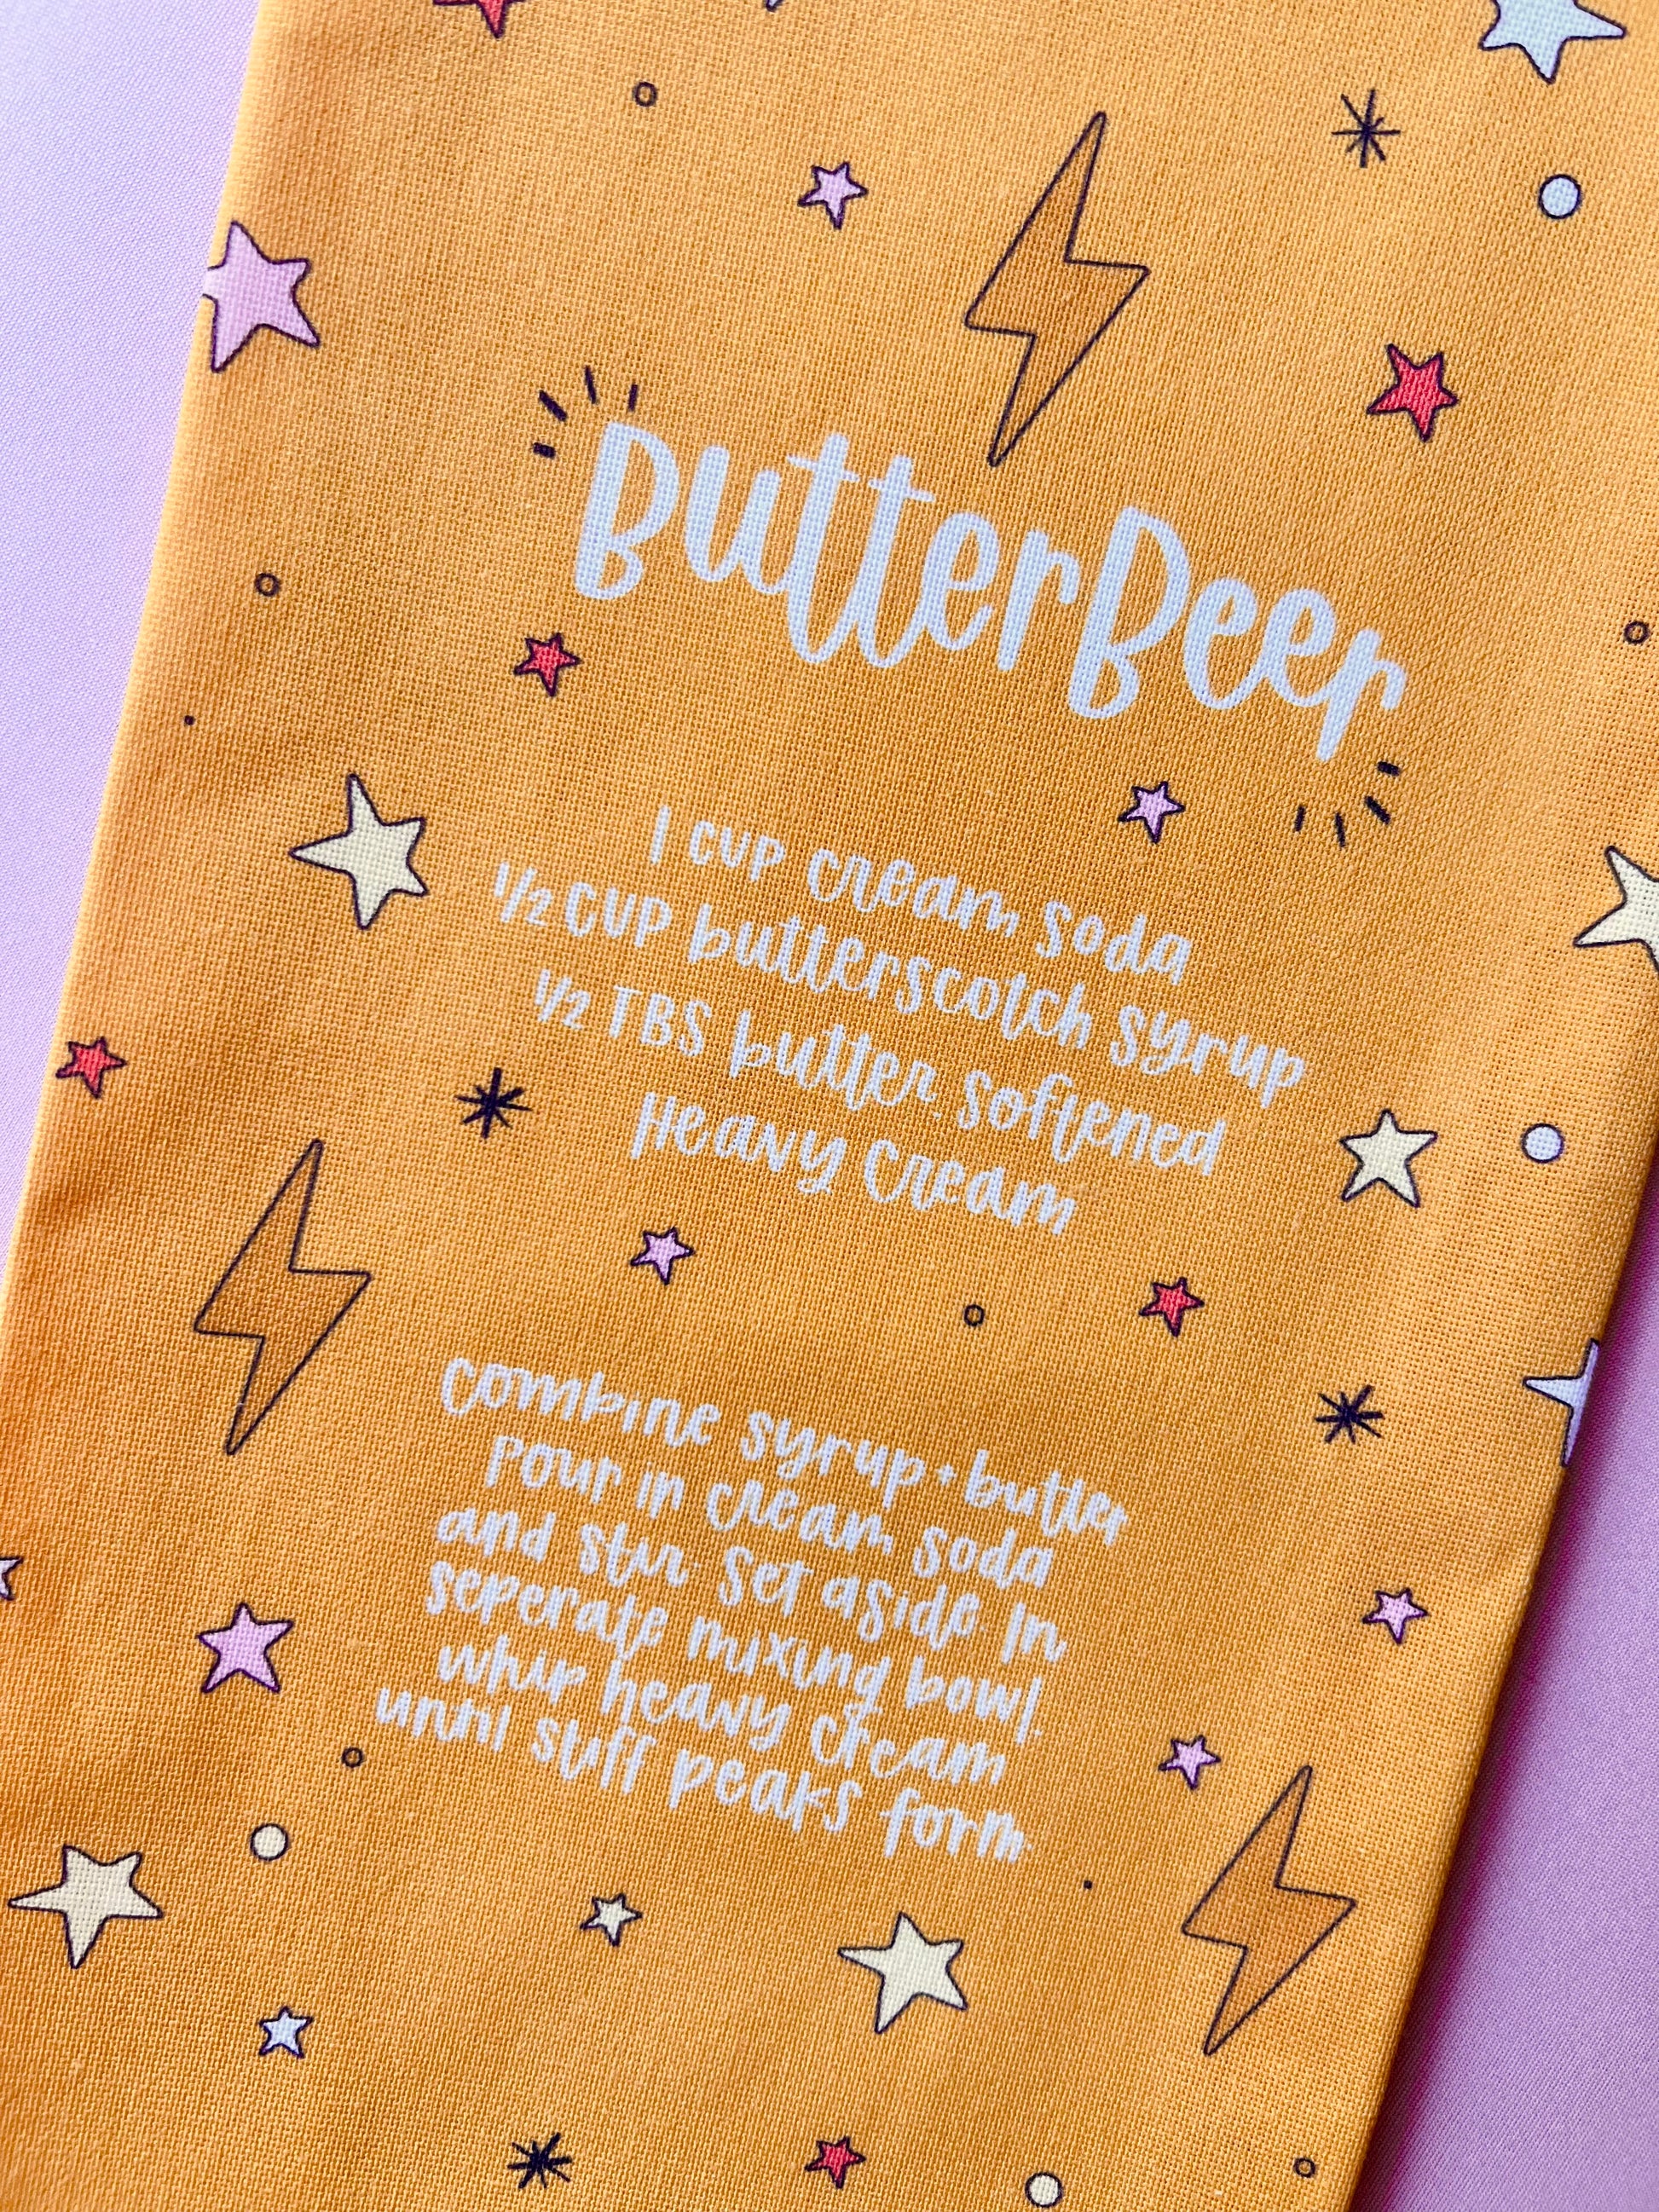 ButterBeer
1 cup cream soda
1/2 cup butterscotch syrup
1/2 TBS butter, softened
Heavy cream
combine syrup + butter
pour in cream soda
and stir. Set aside. In
seperate mixing bowl,
whip heavy cream
until stiff peaks form.